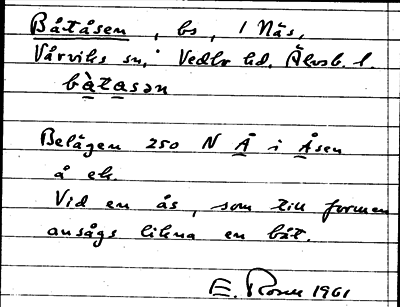 Båtåsen, bs, 1 Näs,
Vårviks sn, Vedbo hd. Älvsb. l.
bàtasən
Belägen 250 N Å i Åsen
å ek.
Vid en ås, som till formen
ansågs likna en båt.
E. Rosen 1961